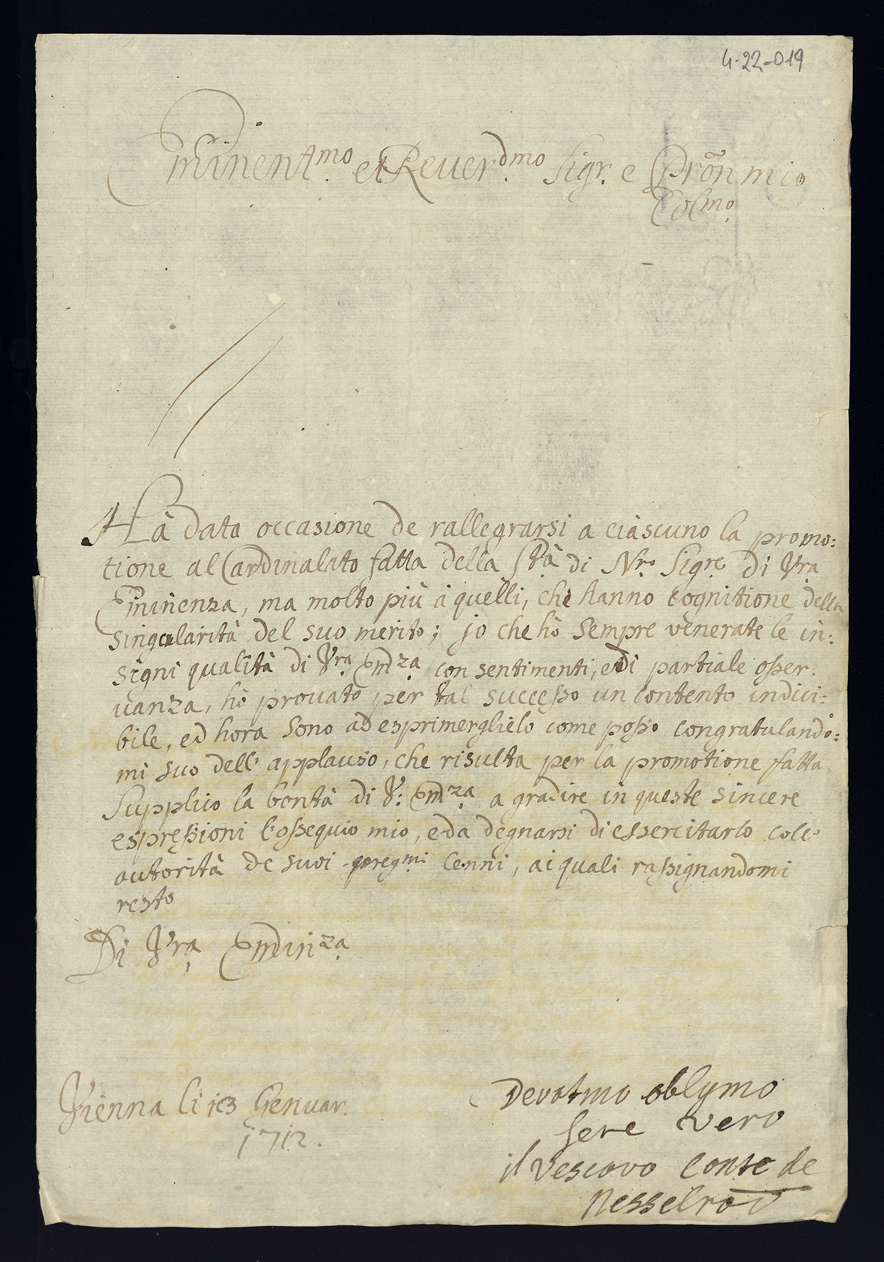 4-22-019
Eminent.mo et Reuer.dmo Sigr. e Prõn mio
Col.mo
Hà data occasione de rallegrarsi a ciascuno la promo:
tione al Cardinalato fatta della S.tà di N.ro Sig.re di V.ra
Eminenza, ma molto più à quelli, che hanno cognitione della
singularità del suo merito; jo che hò sempre venerate le in:
signi qualità di V.ra Em.za con sentimenti, e di partiale osser:
uanza, hò prouato per tal successo un contento indici:
bile, ed hora sono ad esprimerglielo come posso congratulando:
mi suo dell' applauso, che risulta per la promotione fatta
Supplico la bontà di V: Em.za a gradire in queste sincere
espressioni l'ossequio mio, e da degnarsi di essercitarlo coll'
autorità de suoi pregmi cenni, ai quali rassignandomi
resto
Di V.ra Eminza
Vienna li 13 Genuar.
1712.
Devotmo oblgmo
Sere vero
il Vescovo Conte de
Nesselrod